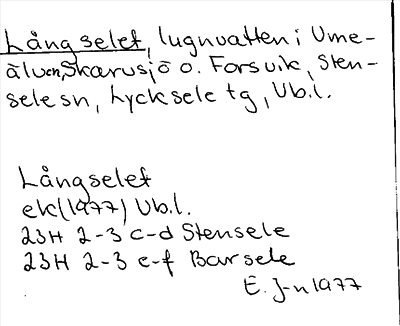 Långselet, lugnvatten i Ume-
älven, Skarvsjö o. Forsvik, Sten-
sele sn, Lycksele tg, Vb.l.
Långselet
ek (1977) Vb.l.
23H 2-3 c-d Stensele
23H 2-3 e-f Barsele
E. J-n 1977